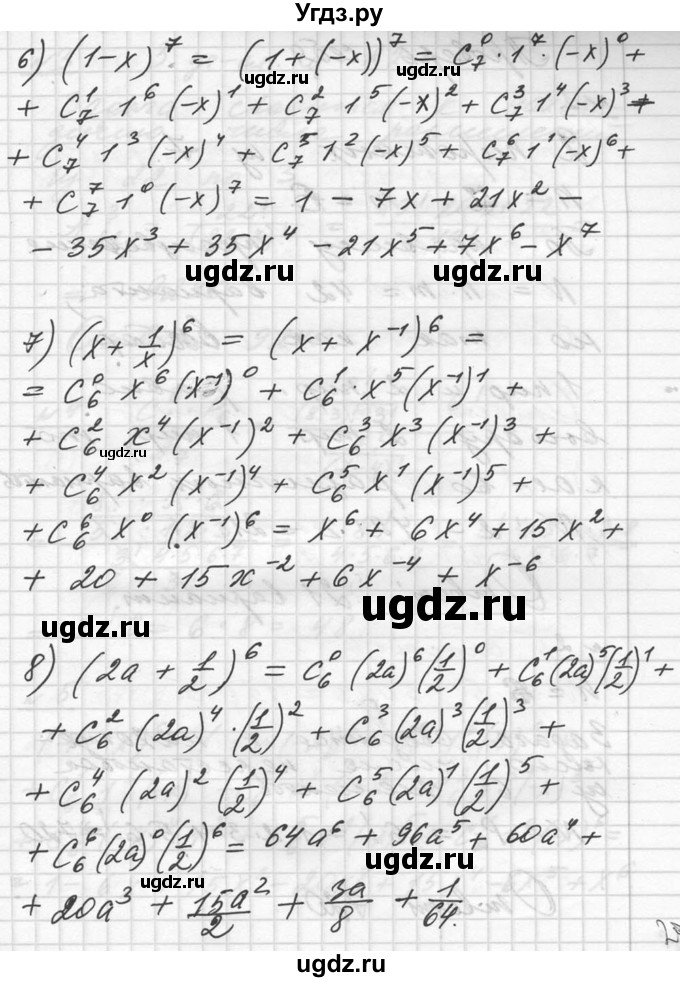 Угдз.ру
6) (1-x)⁷ = (1+(-x))⁷ = C₇⁰·1⁷·(-x)⁰+
ugdz.ru
ugdz.ru
+ C₇¹ 1⁶ (-x)¹ + C₇² 1⁵ (-x)² + C₇³ 1⁴ (-x)³ +
+ C₇⁴ 1³ (-x)⁴ + C₇⁵ 1² (-x)⁵ + C₇⁶ 1¹ (-x)⁶ +
+ C₇⁷ 1⁰ (-x)⁷ = 1 - 7x + 21x² -
- 35x³ + 35x⁴ - 21x⁵ + 7x⁶ - x⁷
ugdz.ru
ugdz.ru
7) (x + 1/x)⁶ = (x + x⁻¹)⁶ =
= C₆⁰ x⁶ (x⁻¹)⁰ + C₆¹ · x⁵ (x⁻¹)¹ +
+ C₆² x⁴ (x⁻¹)² + C₆³ x³ (x⁻¹)³ +
ugdz.ru
+ C₆⁴ x² (x⁻¹)⁴ + C₆⁵ x¹ (x⁻¹)⁵ +
+ C₆⁶ x⁰ (x⁻¹)⁶ = x⁶ + 6x⁴ + 15x² +
+ 20 + 15x⁻² + 6x⁻⁴ + x⁻⁶
ugdz.ru
ugdz.ru
8) (2a + 1/2)⁶ = C₆⁰ (2a)⁶ (1/2)⁰ + C₆¹ (2a)⁵ (1/2)¹ +
+ C₆² (2a)⁴ · (1/2)² + C₆³ (2a)³ (1/2)³ +
+ C₆⁴ (2a)² (1/2)⁴ + C₆⁵ (2a)¹ (1/2)⁵ +
+ C₆⁶ (2a)⁰ (1/2)⁶ = 64a⁶ + 96a⁵ + 60a⁴ +
ugdz.ru
+ 20a³ + 15a²/2 + 3a/8 + 1/64.
ugdz.ru